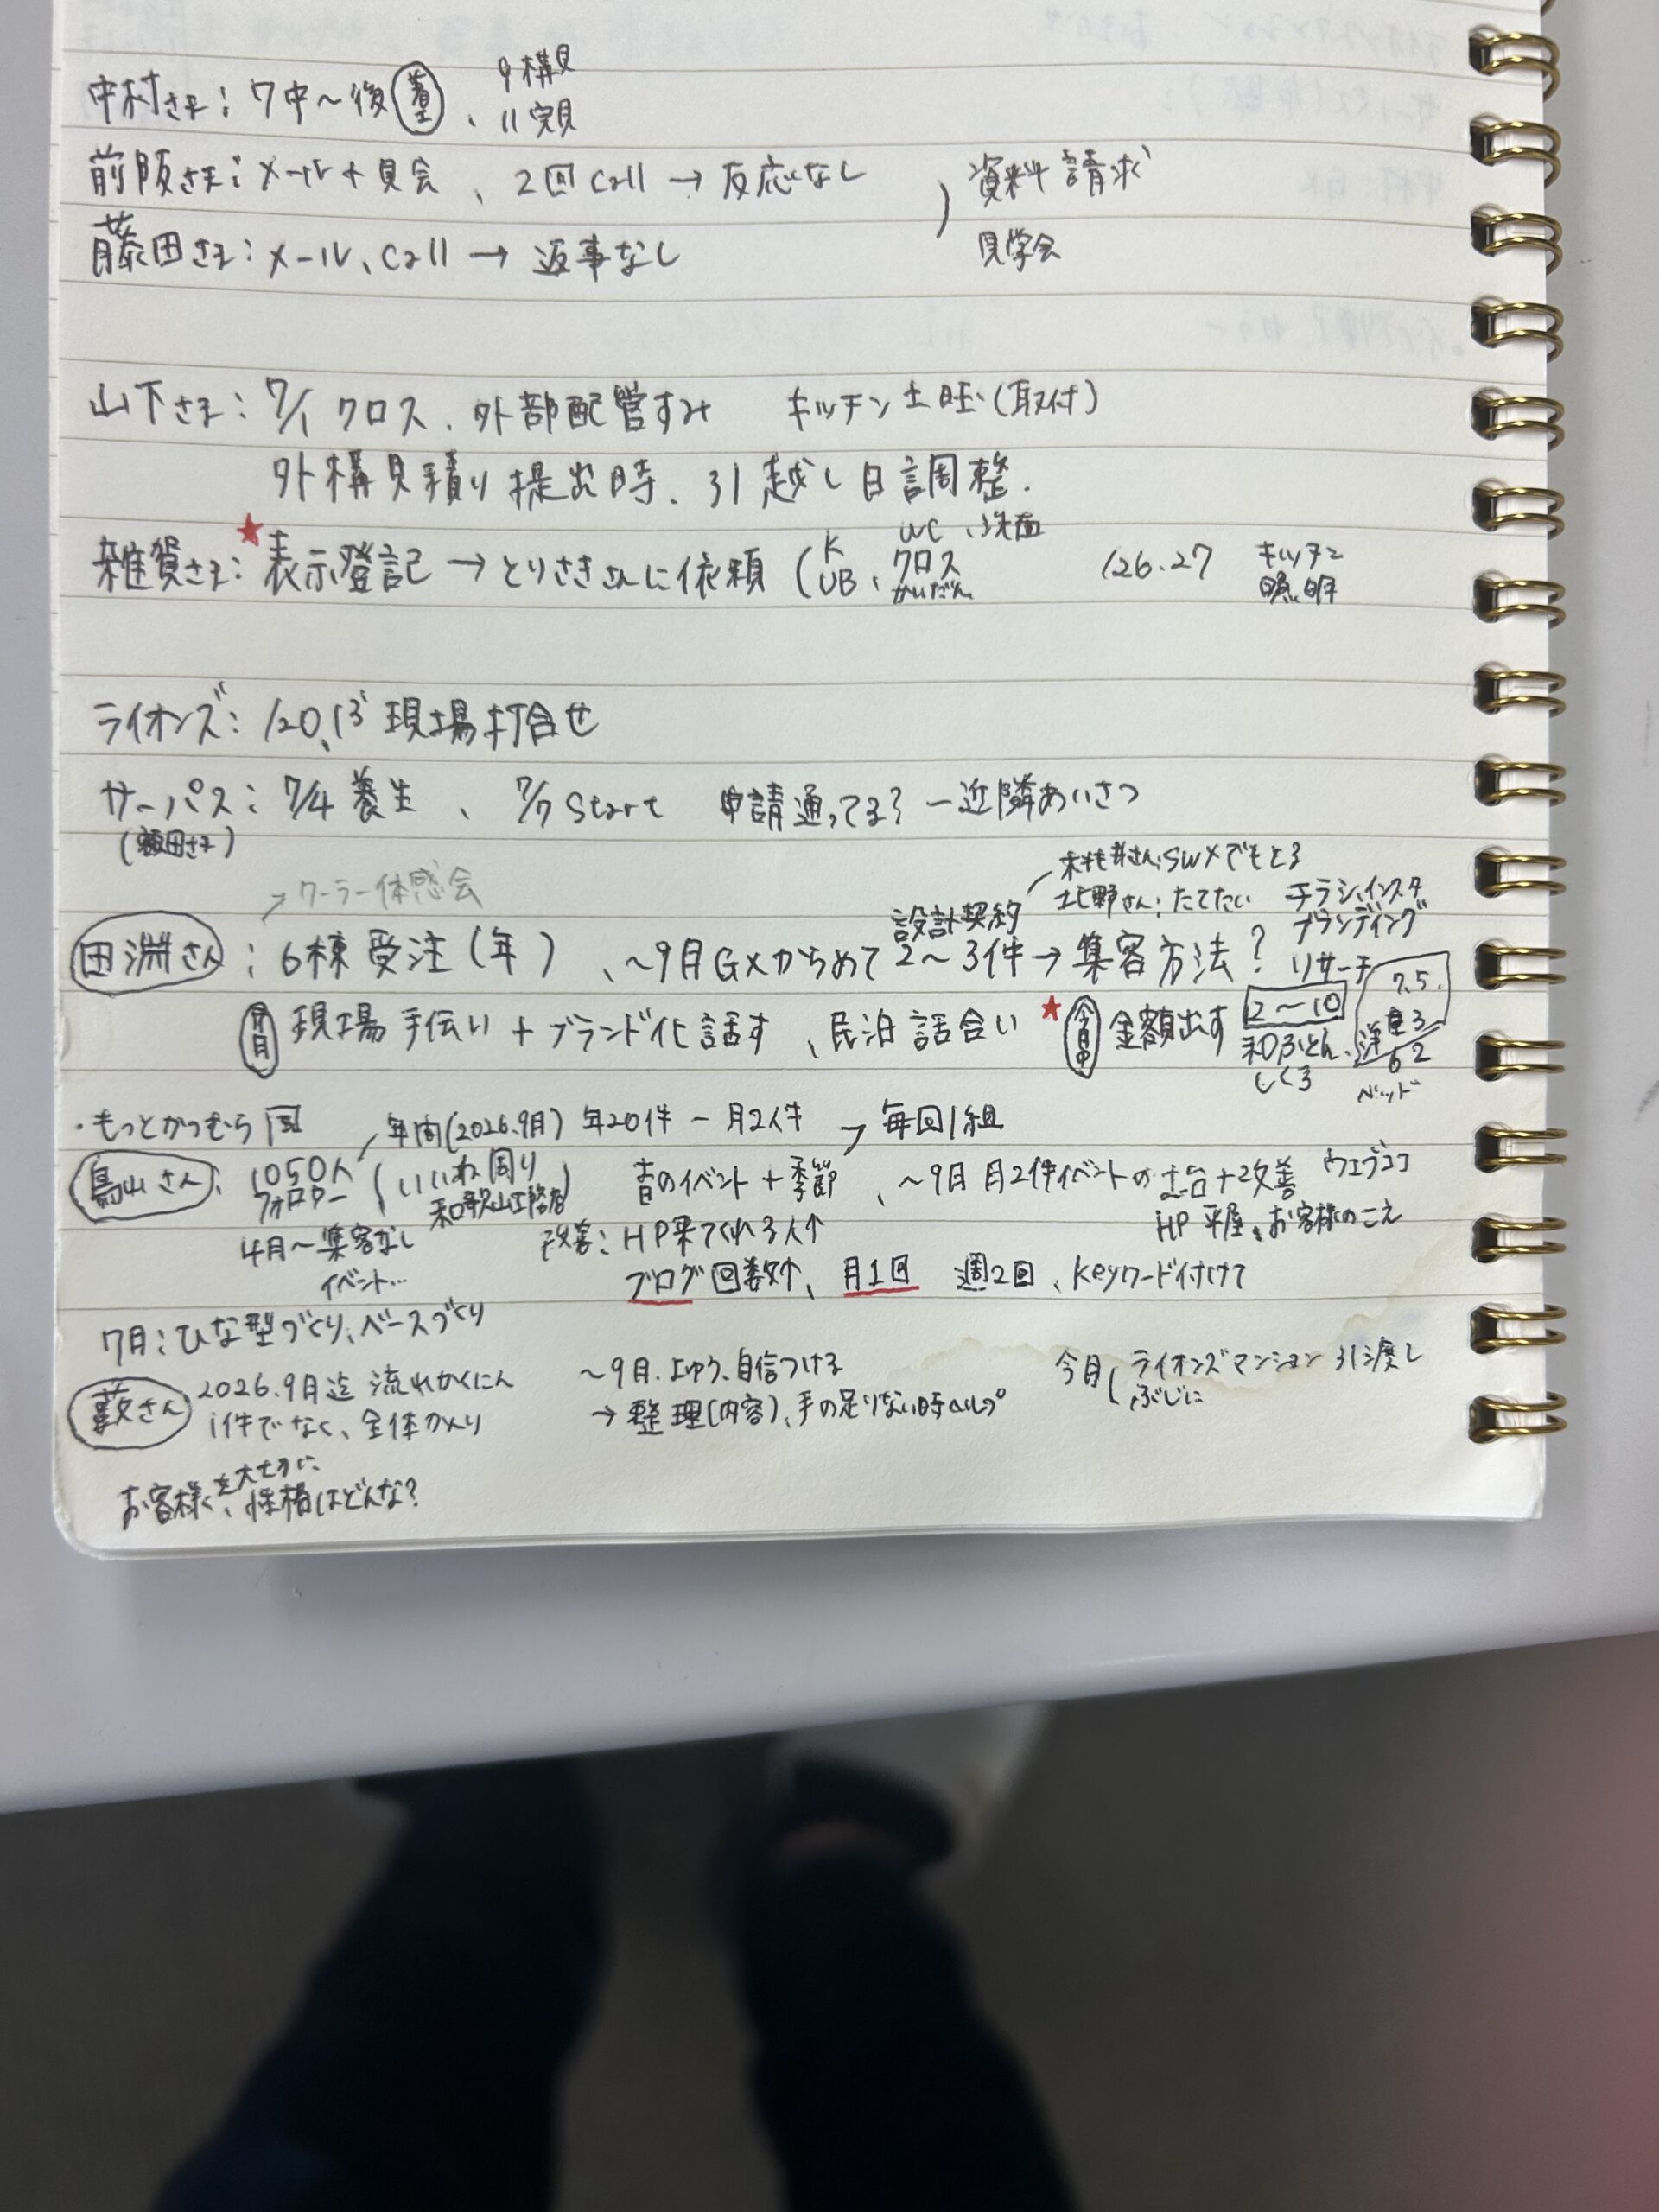 中村さま：7中〜後 着工、9構見
11完見
前阪さま：メール＋見会、2回call→反応なし
資料請求
藤田さま：メール、call→返事なし
見学会
山下さま：7/1 クロス、外部配管すみ キッチン土旺(取付)
外構見積り提出時、引越し日調整.
WC、洗面
雑貨さま：★表示登記→とりさきさんに依頼(K UB、クロス かいだん /26.27 キッチン 照明
ライオンズ：/20,13 現場打合せ
サーパス：7/4 養生、7/7 Start 申請通ってる？ー近隣あいさつ
→クーラー体感会
SWメでもとる
北野さん：たてたい チラシ、インスタ
設計契約 ブランディング
田淵さん：6棟受注(年)、〜9月GXからめて2〜3件→集客方法？リサーチ
7.5.
現場手伝い＋ブランド化話す、民泊話合い ★今月中 金額出す 2〜10
和ふとん、
しくる ベッド
・もっとかつむら 年間(2026.9月) 年20件ー月2件 → 毎回1組
鳥山さん：1050人 フォロワー (いいね周り 和歌山工務店) 昔のイベント＋季節、〜9月 月2件イベントの土台＋改善 ウェブココ
HP 平屋、お客様のこえ
4月〜集客なし 改善：HP来てくれる人↑
イベント… ブログ回数↑、月1回 週2回、keyワード付けて
7月：ひな型づくり、ベースづくり
藪さん 2026.9月迄 流れかくにん 〜9月.よゆう、自信つける 今月(ライオンズマンション引渡し
1件でなく、全体かんり →整理(内容)、手の足りない時ヘルプ ぶじに
を大切に
お客様、性格はどんな？